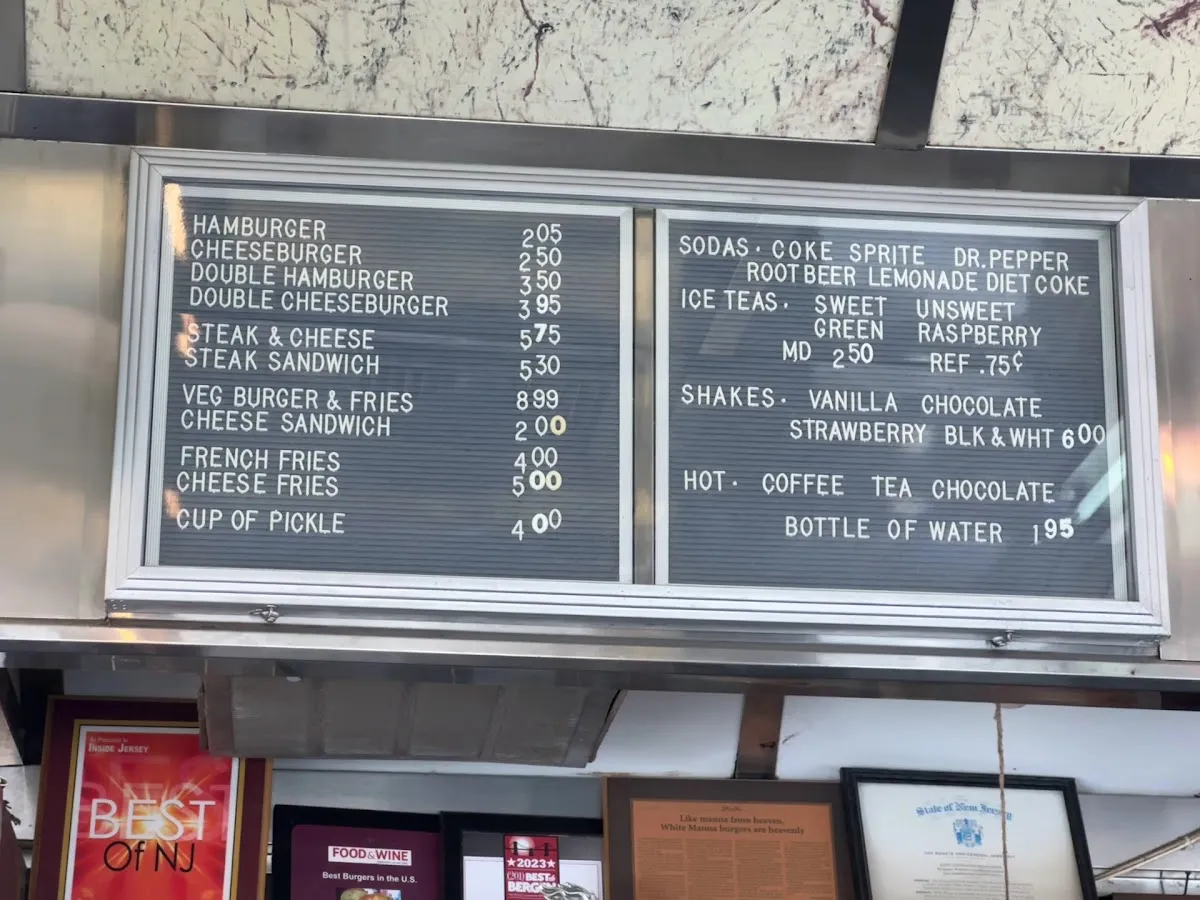 HAMBURGER 2 05
CHEESEBURGER 2 50
DOUBLE HAMBURGER 3 50
DOUBLE CHEESEBURGER 3 95
STEAK & CHEESE 5 75
STEAK SANDWICH 5 30
VEG BURGER & FRIES 8 99
CHEESE SANDWICH 2 00
FRENCH FRIES 4 00
CHEESE FRIES 5 00
CUP OF PICKLE 4 00
SODAS · COKE SPRITE DR. PEPPER
ROOT BEER LEMONADE DIET COKE
ICE TEAS · SWEET UNSWEET
GREEN RASPBERRY
MD 2 50 REF .75¢
SHAKES · VANILLA CHOCOLATE
STRAWBERRY BLK & WHT 6 00
HOT · COFFEE TEA CHOCOLATE
BOTTLE OF WATER 1 95
INSIDE JERSEY
BEST
Of NJ
FOOD & WINE
Best Burgers in the U.S.
★ 2023 ★
BEST
BERGEN
Like manna from heaven,
White Manna burgers are heavenly
State of New Jersey